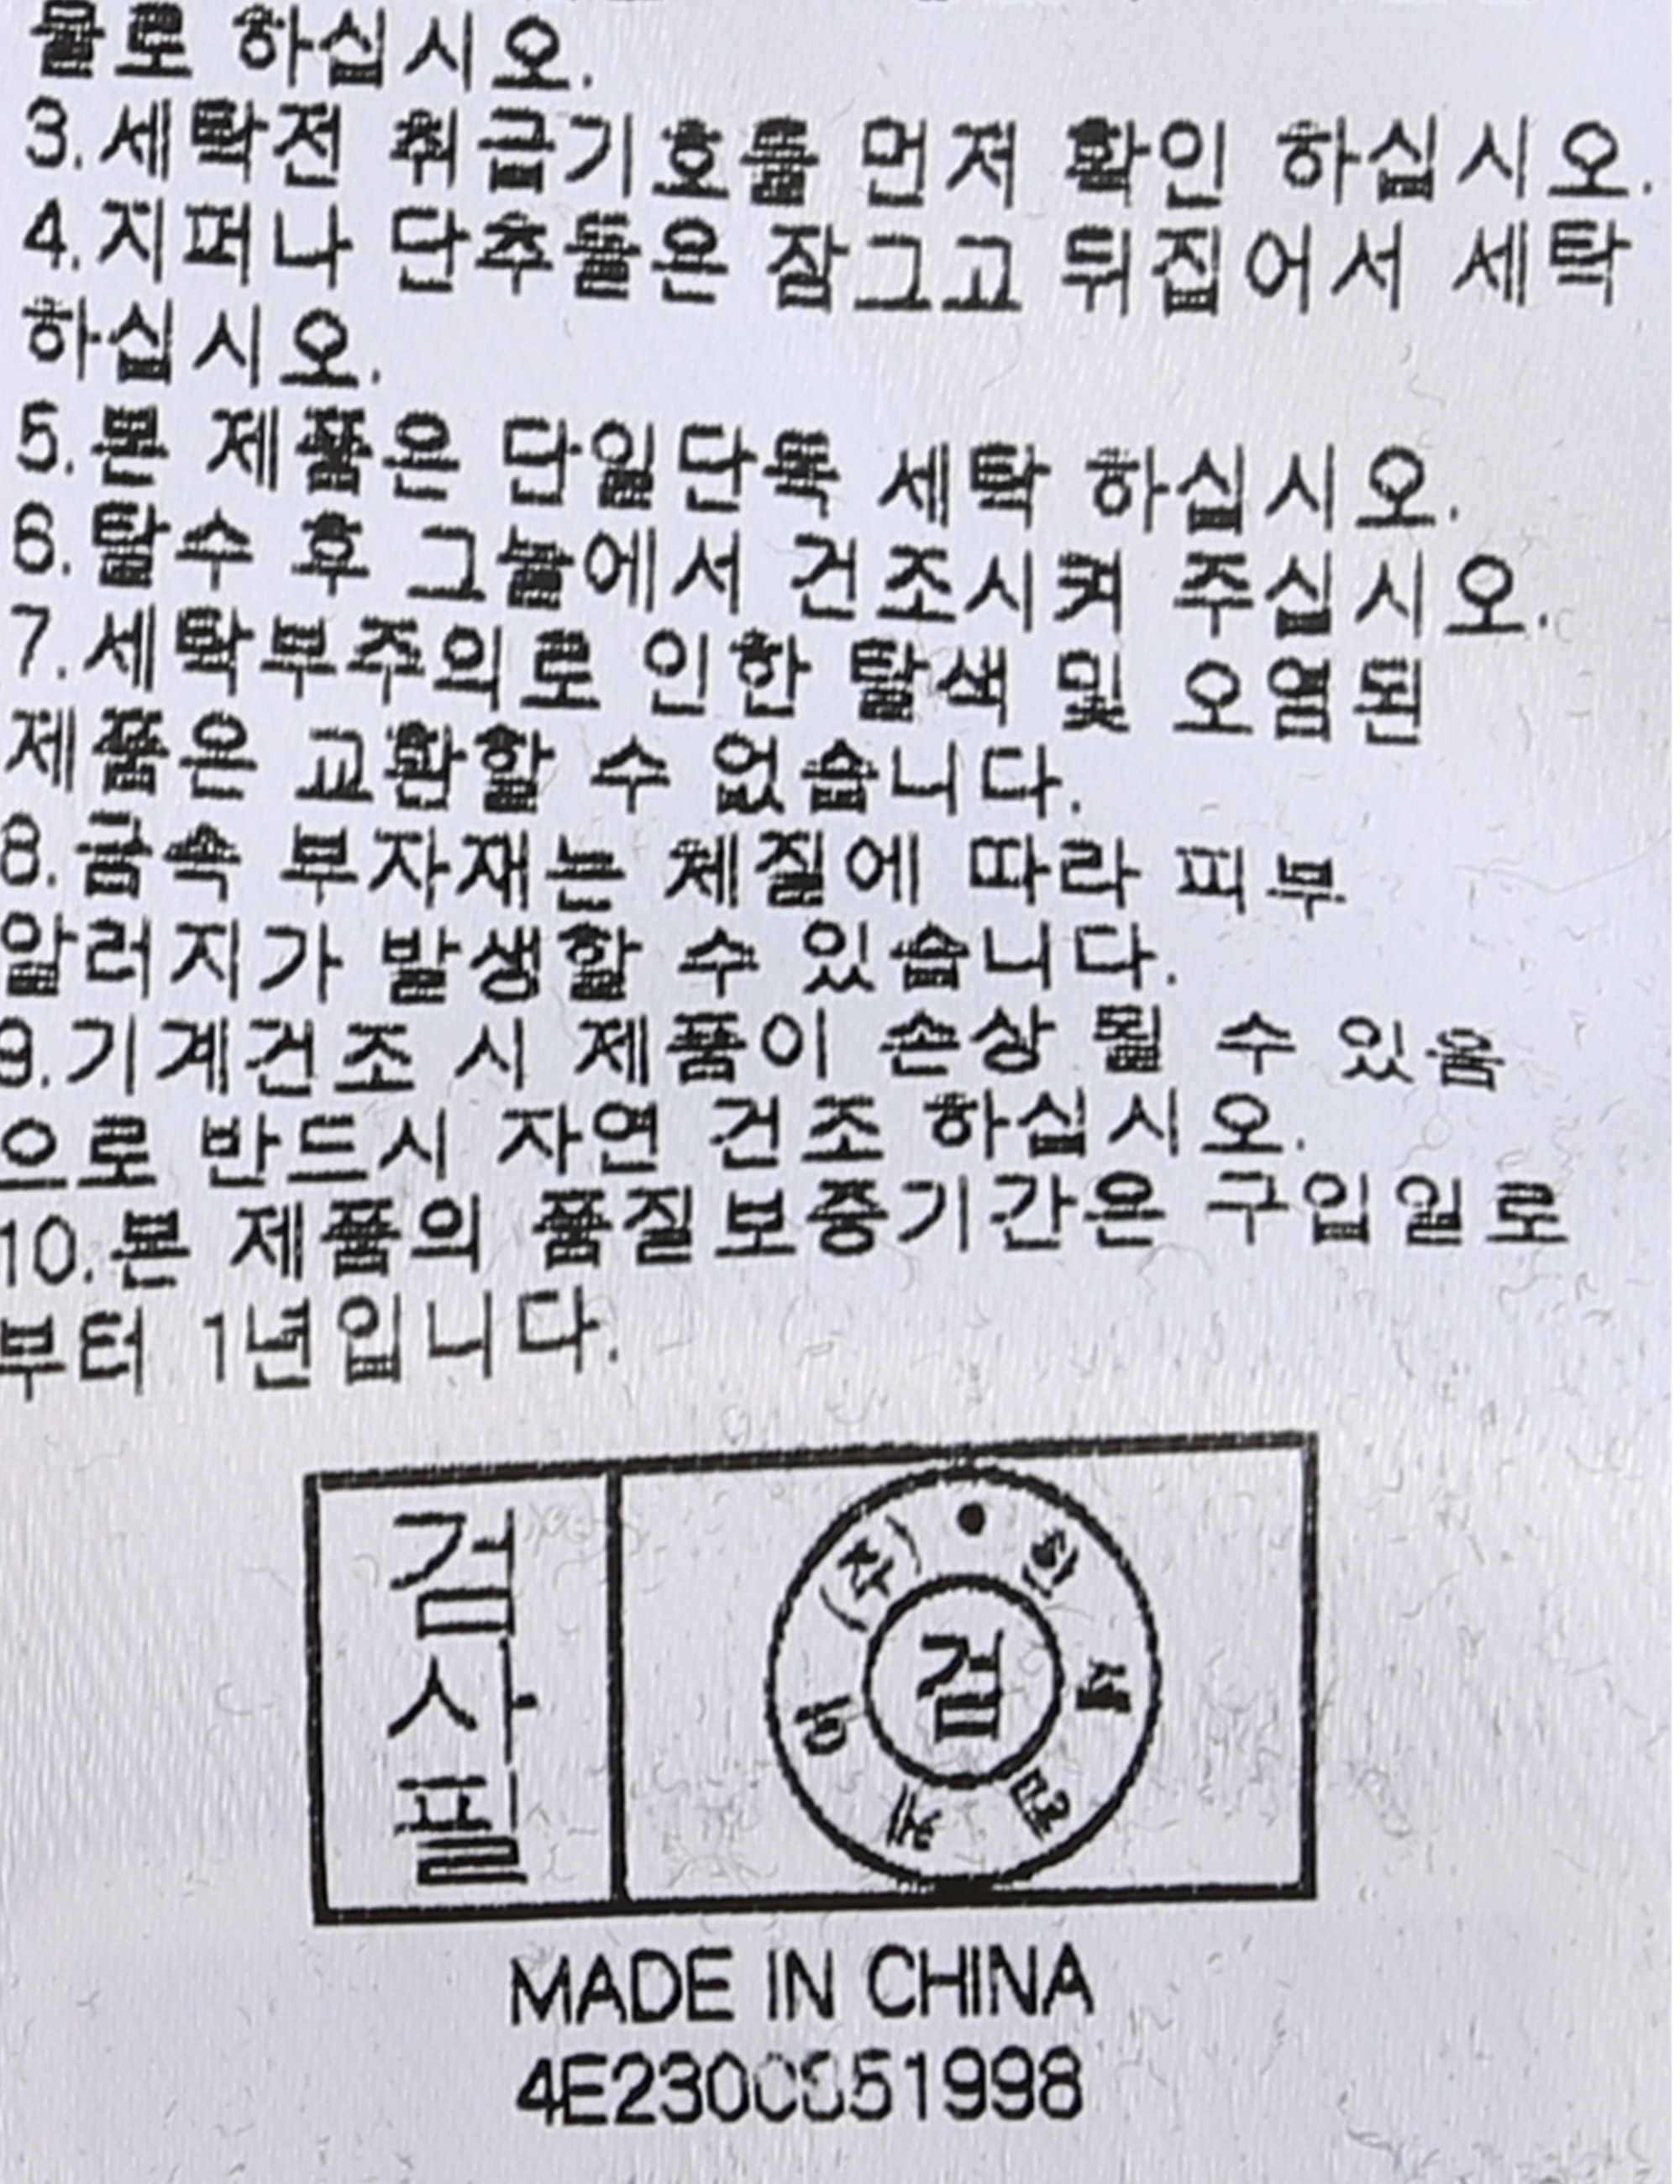 물로 하십시오.
3.세탁전 취급기호를 먼저 확인 하십시오.
4.지퍼나 단추들은 잠그고 뒤집어서 세탁
하십시오.
5.본 제품은 단일단독 세탁 하십시오.
6.탈수 후 그늘에서 건조시켜 주십시오.
7.세탁부주의로 인한 탈색 및 오염된
제품은 교환할 수 없습니다.
8.금속 부자재는 체질에 따라 피부
알러지가 발생할 수 있습니다.
9.기계건조 시 제품이 손상 될 수 있음
으로 반드시 자연 건조 하십시오.
10.본 제품의 품질보증기간은 구입일로
부터 1년입니다.
검사필
검
MADE IN CHINA